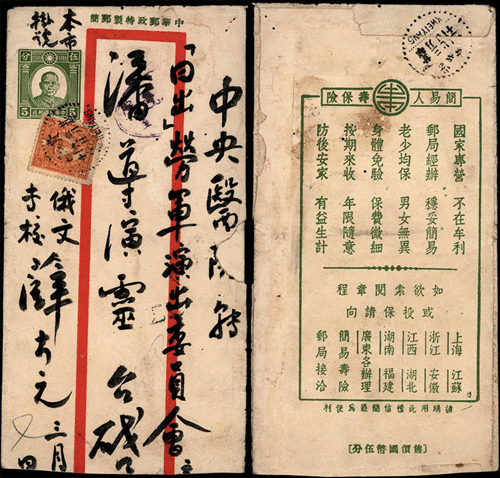 中華郵政特製郵簡
本市
掛號
伍分
5 5
中央醫院轉
「日出」勞軍演出委員會
潘導演靈 台啟
俄文
大元 三月
日
KWEIYANG
簡易人壽保險
國家專營 不在牟利
郵局經辦 穩妥簡易
老少均保 男女無異
身體免驗 保費微細
按期來收 年限隨意
防後安家 有益生計
如欲索閱章程
或投保請向
上海 江蘇
浙江 安徽
江西 湖北
湖南 福建
廣東各辦理
簡易壽險
郵局接洽
請購用此種信簡最為便利
[售價國幣伍分]